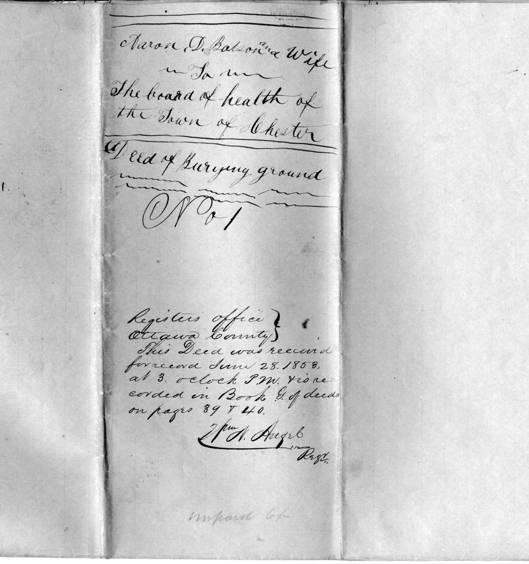 Aaron D. Batson and Wife
To
The board of health of
the Town of Chester
Deed of Burying ground
No 1
Registers office }
Ottawa County }
This Deed was receivd
for record June 28. 1858.
at 3. oclock P.M. & is re
corded in Book G of deeds
on pages 39 & 40.
Wm N. Angel
Regt.